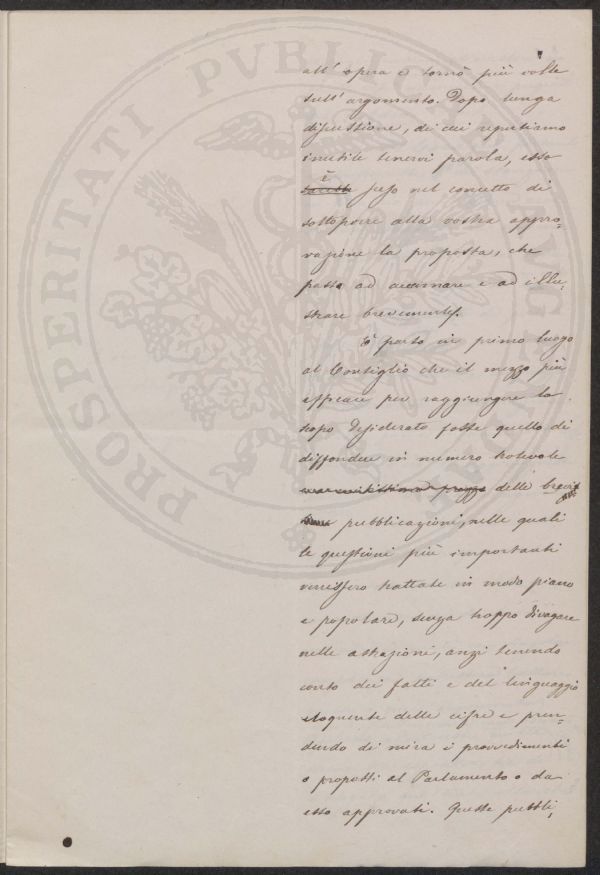 PROSPERITATI PVBLICAE AVGENDAE
all' opera e tornò più volte
sull' argomento. Dopo lunga
discussione, di cui reputiamo
inutile tenervi parola, esso
è
sarebbe sceso nel concetto di
sottoporre alla vostra appro-
vazione la proposta, che
passo ad accennare e ad illu-
strare brevemente.
È parso in primo luogo
al Consiglio che il mezzo più
efficace per raggiungere lo
scopo desiderato fosse quello di
diffondere in numero notevole
delle brevi
pubblicazioni, nelle quali
le questioni più importanti
venissero trattate in modo piano
e popolare, senza troppo divagare
nelle astrazioni, anzi tenendo
conto dei fatti e del linguaggio
eloquente delle cifre e pren-
dendo di mira i provvedimenti
o proposti al Parlamento o da
esso approvati. Queste pubbli,